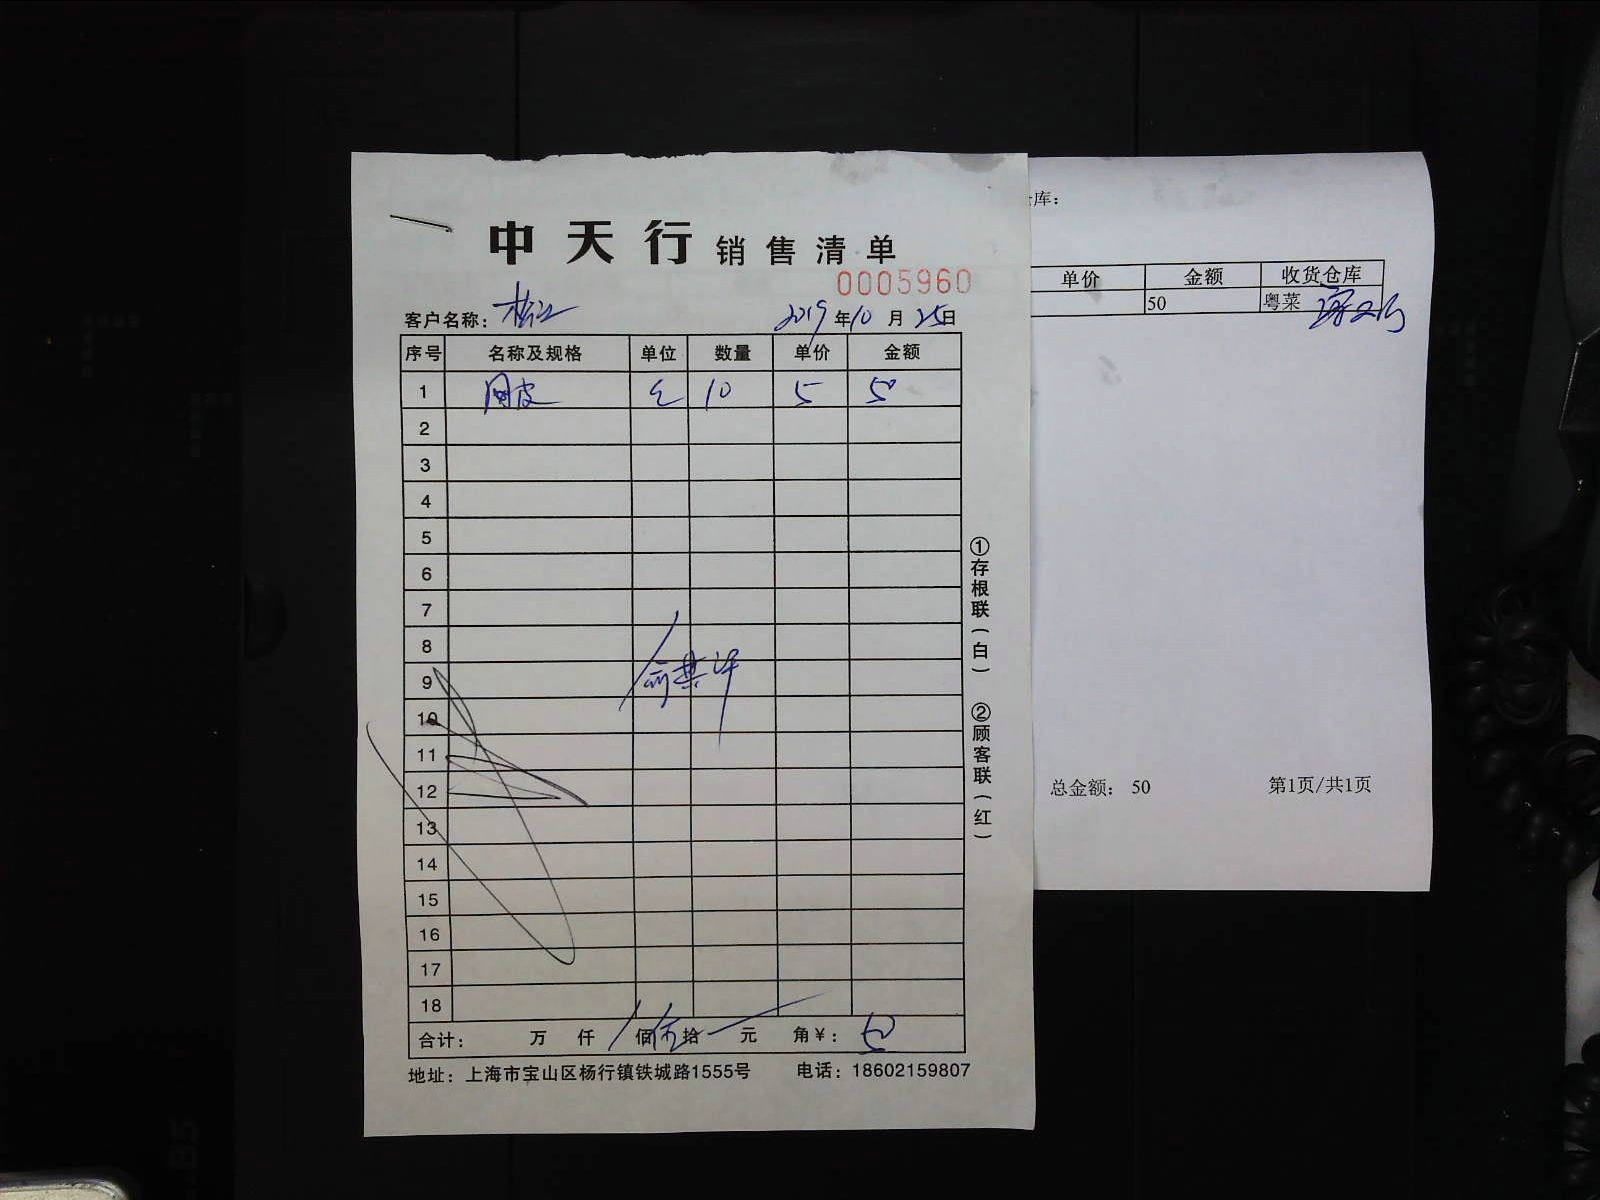 中天行销售清单
0005960
客户名称：松江 2019年10月25日
序号 名称及规格 单位 数量 单价 金额
1 网皮 包 10 5 50
2
3
4
5
6
7
8
9
10
11
12
13
14
15
16
17
18
合计： 万 仟 佰伍拾 元 角¥：50
地址：上海市宝山区杨行镇铁城路1555号 电话：18602159807
①存根联（白） ②顾客联（红）
库：
单价 金额 收货仓库
50 粤菜
总金额： 50 第1页/共1页